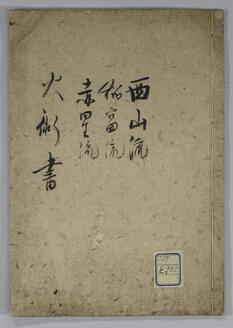 西山流
稲富流
赤星流
火術書